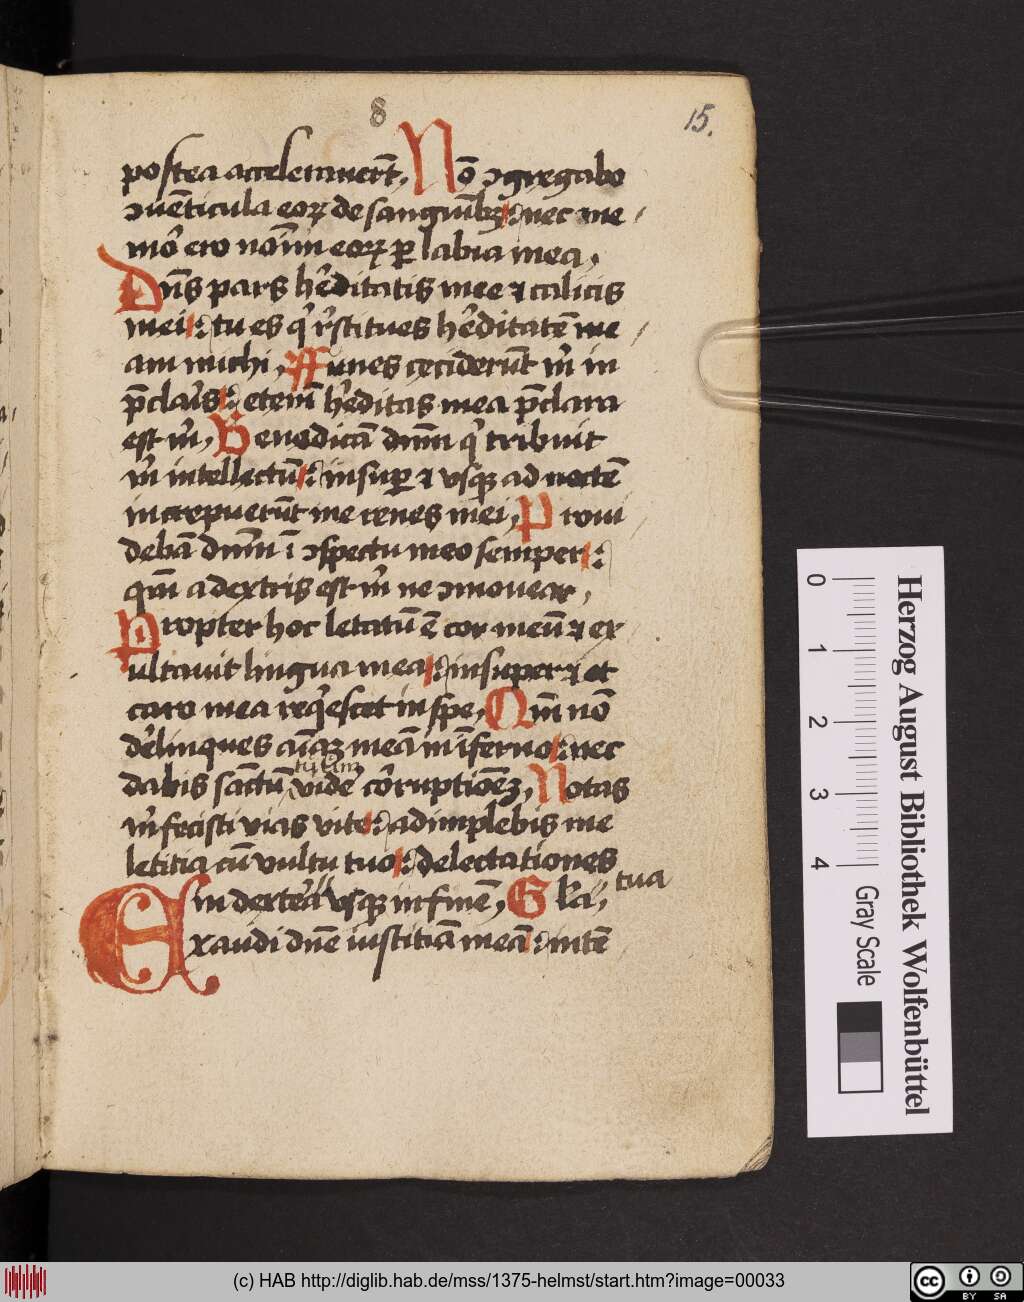 8
15.
postea accelerauert̄. Nō ɔgregabo
ɔuēticula eoꝝ de sanguīībꝫ: nec me
mor̉ ero noīm eorꝝ ꝑ labia mea.
Dn̄s pars hēditatis mee ⁊ calicis
mei: tu es q̉ r̉stitues hēditatē me
am michi. ffunes ceciderūt m̉ in
p̄clar̉s: eteni̅ hēditas mea p̄clara
est m̉. Benedicā dnm̄ q̉ tribuit
m̉ intellectū: insuꝑ ⁊ vsqꝫ ad noctē
increpuerūt me renes mei. Proui
debā dnm̄ ī ɔspectu meo semper:
qm̄ a dextris est m̉ ne ɔmouear.
Propter hoc letatū ē cor meū ⁊ ex
ultauit lingua mea: insuper ⁊ et
caro mea req̉escet in spe. Qm̄ nō
derl̉inques aīaꝫ meā in īferno: nec
dabis sāctū tuum vidēr̉ cōruptiōeꝫ. Notas
m̉ fecisti vias vite: adimplebis me
letitia cū vultu tuo: delectationes
in dextera tua vsqꝫ in finē. Gl̉a.
Exaudi dn̄e iustitiā meā: intē
Herzog August Bibliothek Wolfenbüttel
0 1 2 3 4 Gray Scale
(c) HAB http://diglib.hab.de/mss/1375-helmst/start.htm?image=00033
cc BY SA